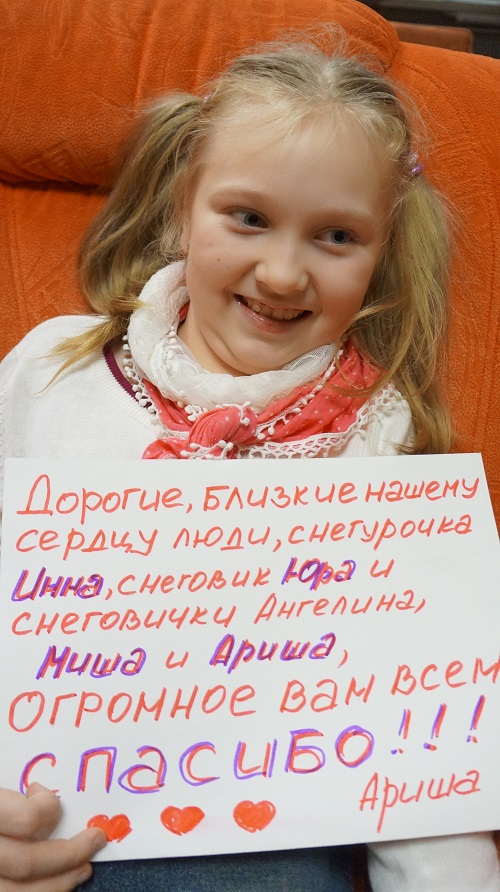 Дорогие, близкие нашему
сердцу люди, снегурочка
Инна, снеговик Юра и
снеговички Ангелина,
Миша и Ариша,
Огромное вам всем
спасибо!!!
Ариша